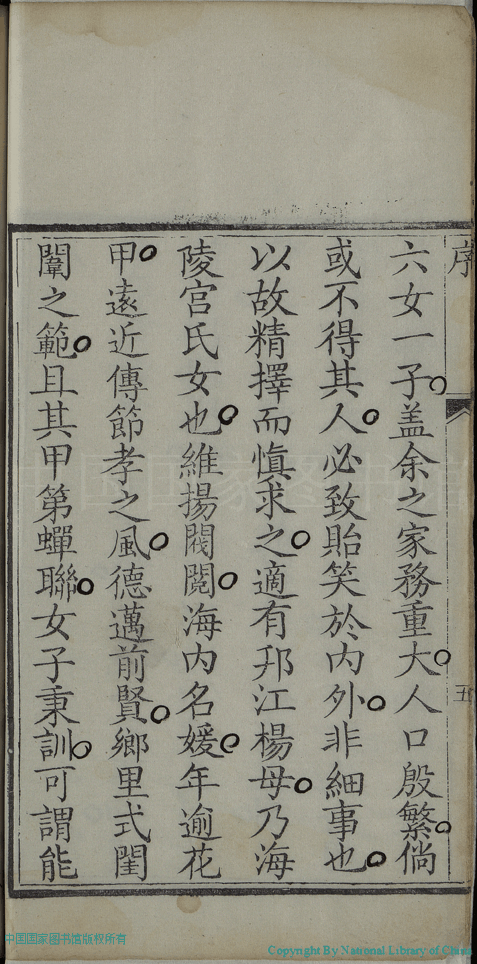 序
五
六女一子。盖余之家務重大。人口殷繁。倘
或不得其人。必致貽笑於內外。非細事也。
以故精擇而慎求之。適有邗江楊母。乃海
陵宮氏女也。維揚閥閱。海內名媛。年逾花
甲。遠近傳節孝之風。德邁前賢。鄉里式閨
闈之範。且其甲第蟬聯。女子秉訓。可謂能
中国国家图书馆版权所有
Copyright By National Library of China